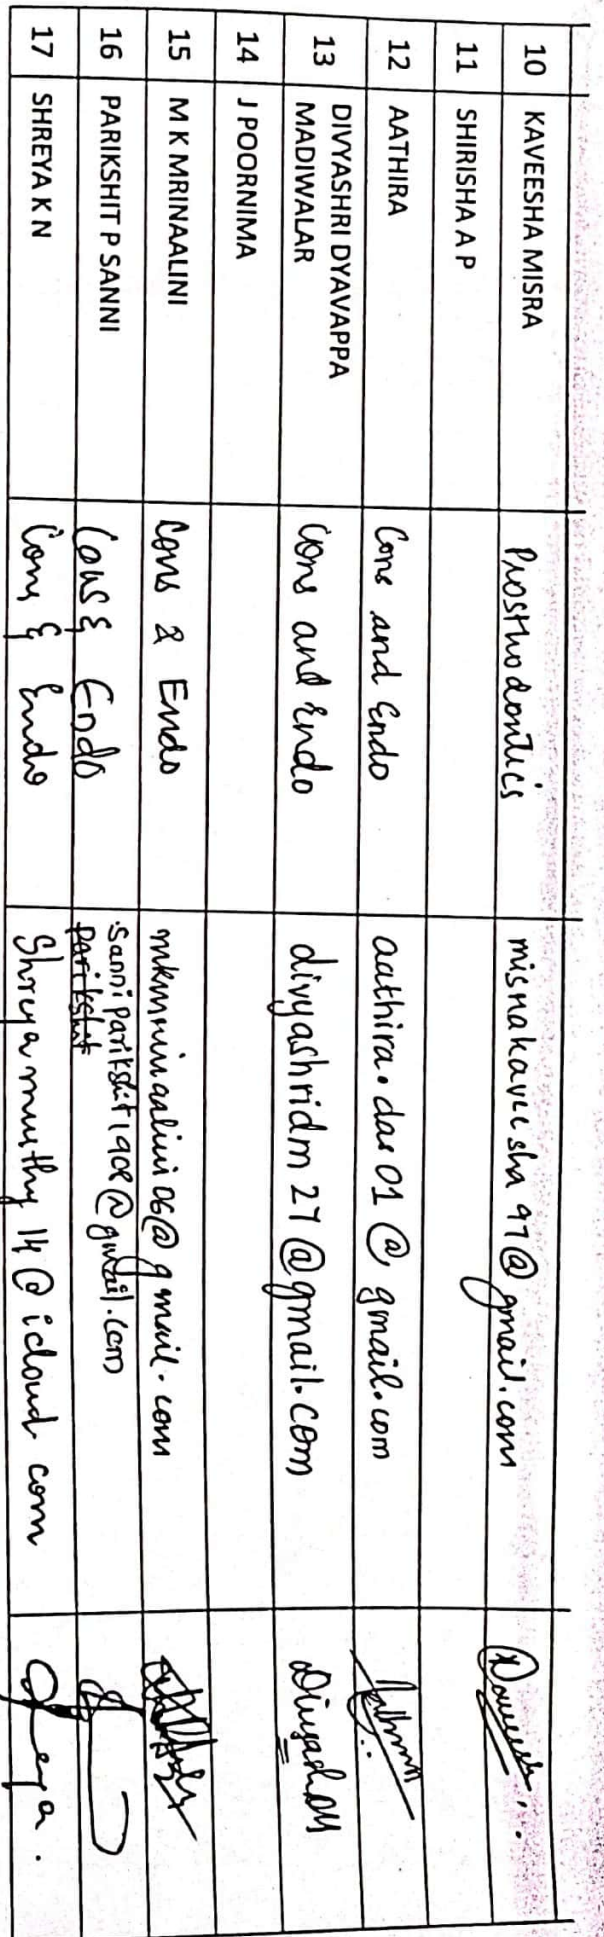 10 KAVEESHA MISRA Prosthodontics misrakaveesha97@gmail.com
11 SHIRISHA A P
12 AATHIRA Cons and Endo aathira.das01@gmail.com
13 DIVYASHRI DYAVAPPA
MADIWALAR Cons and Endo divyashridm27@gmail.com Divyashri
14 J POORNIMA
15 M K MRINAALINI Cons & Endo mkmrinaalini06@gmail.com
16 PARIKSHIT P SANNI Cons & Endo sanniparikshit1908@gmail.com
parikshit
17 SHREYA K N Cons & Endo Shreyamurthy14@icloud com